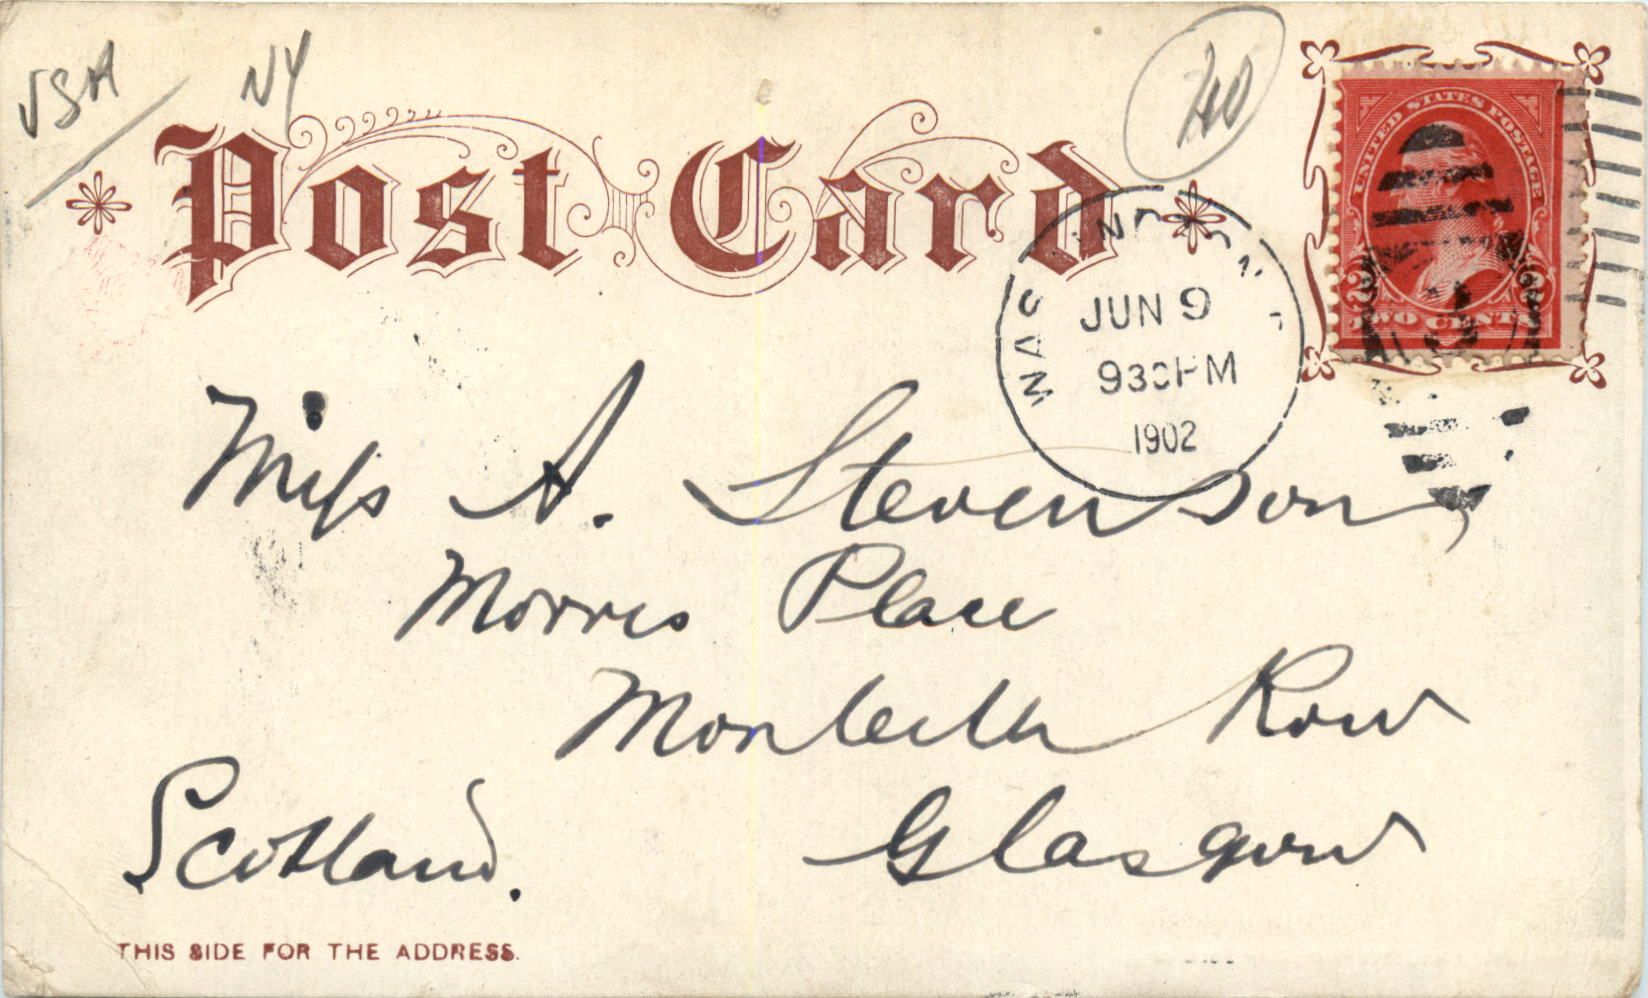 USA
NY
Post Card
UNITED STATES POSTAGE
2 TWO CENTS 2
JUN 9
930PM
1902
Miss A. Stevenson,
Morris Place
Monteith Row
Glasgow
Scotland.
THIS SIDE FOR THE ADDRESS.